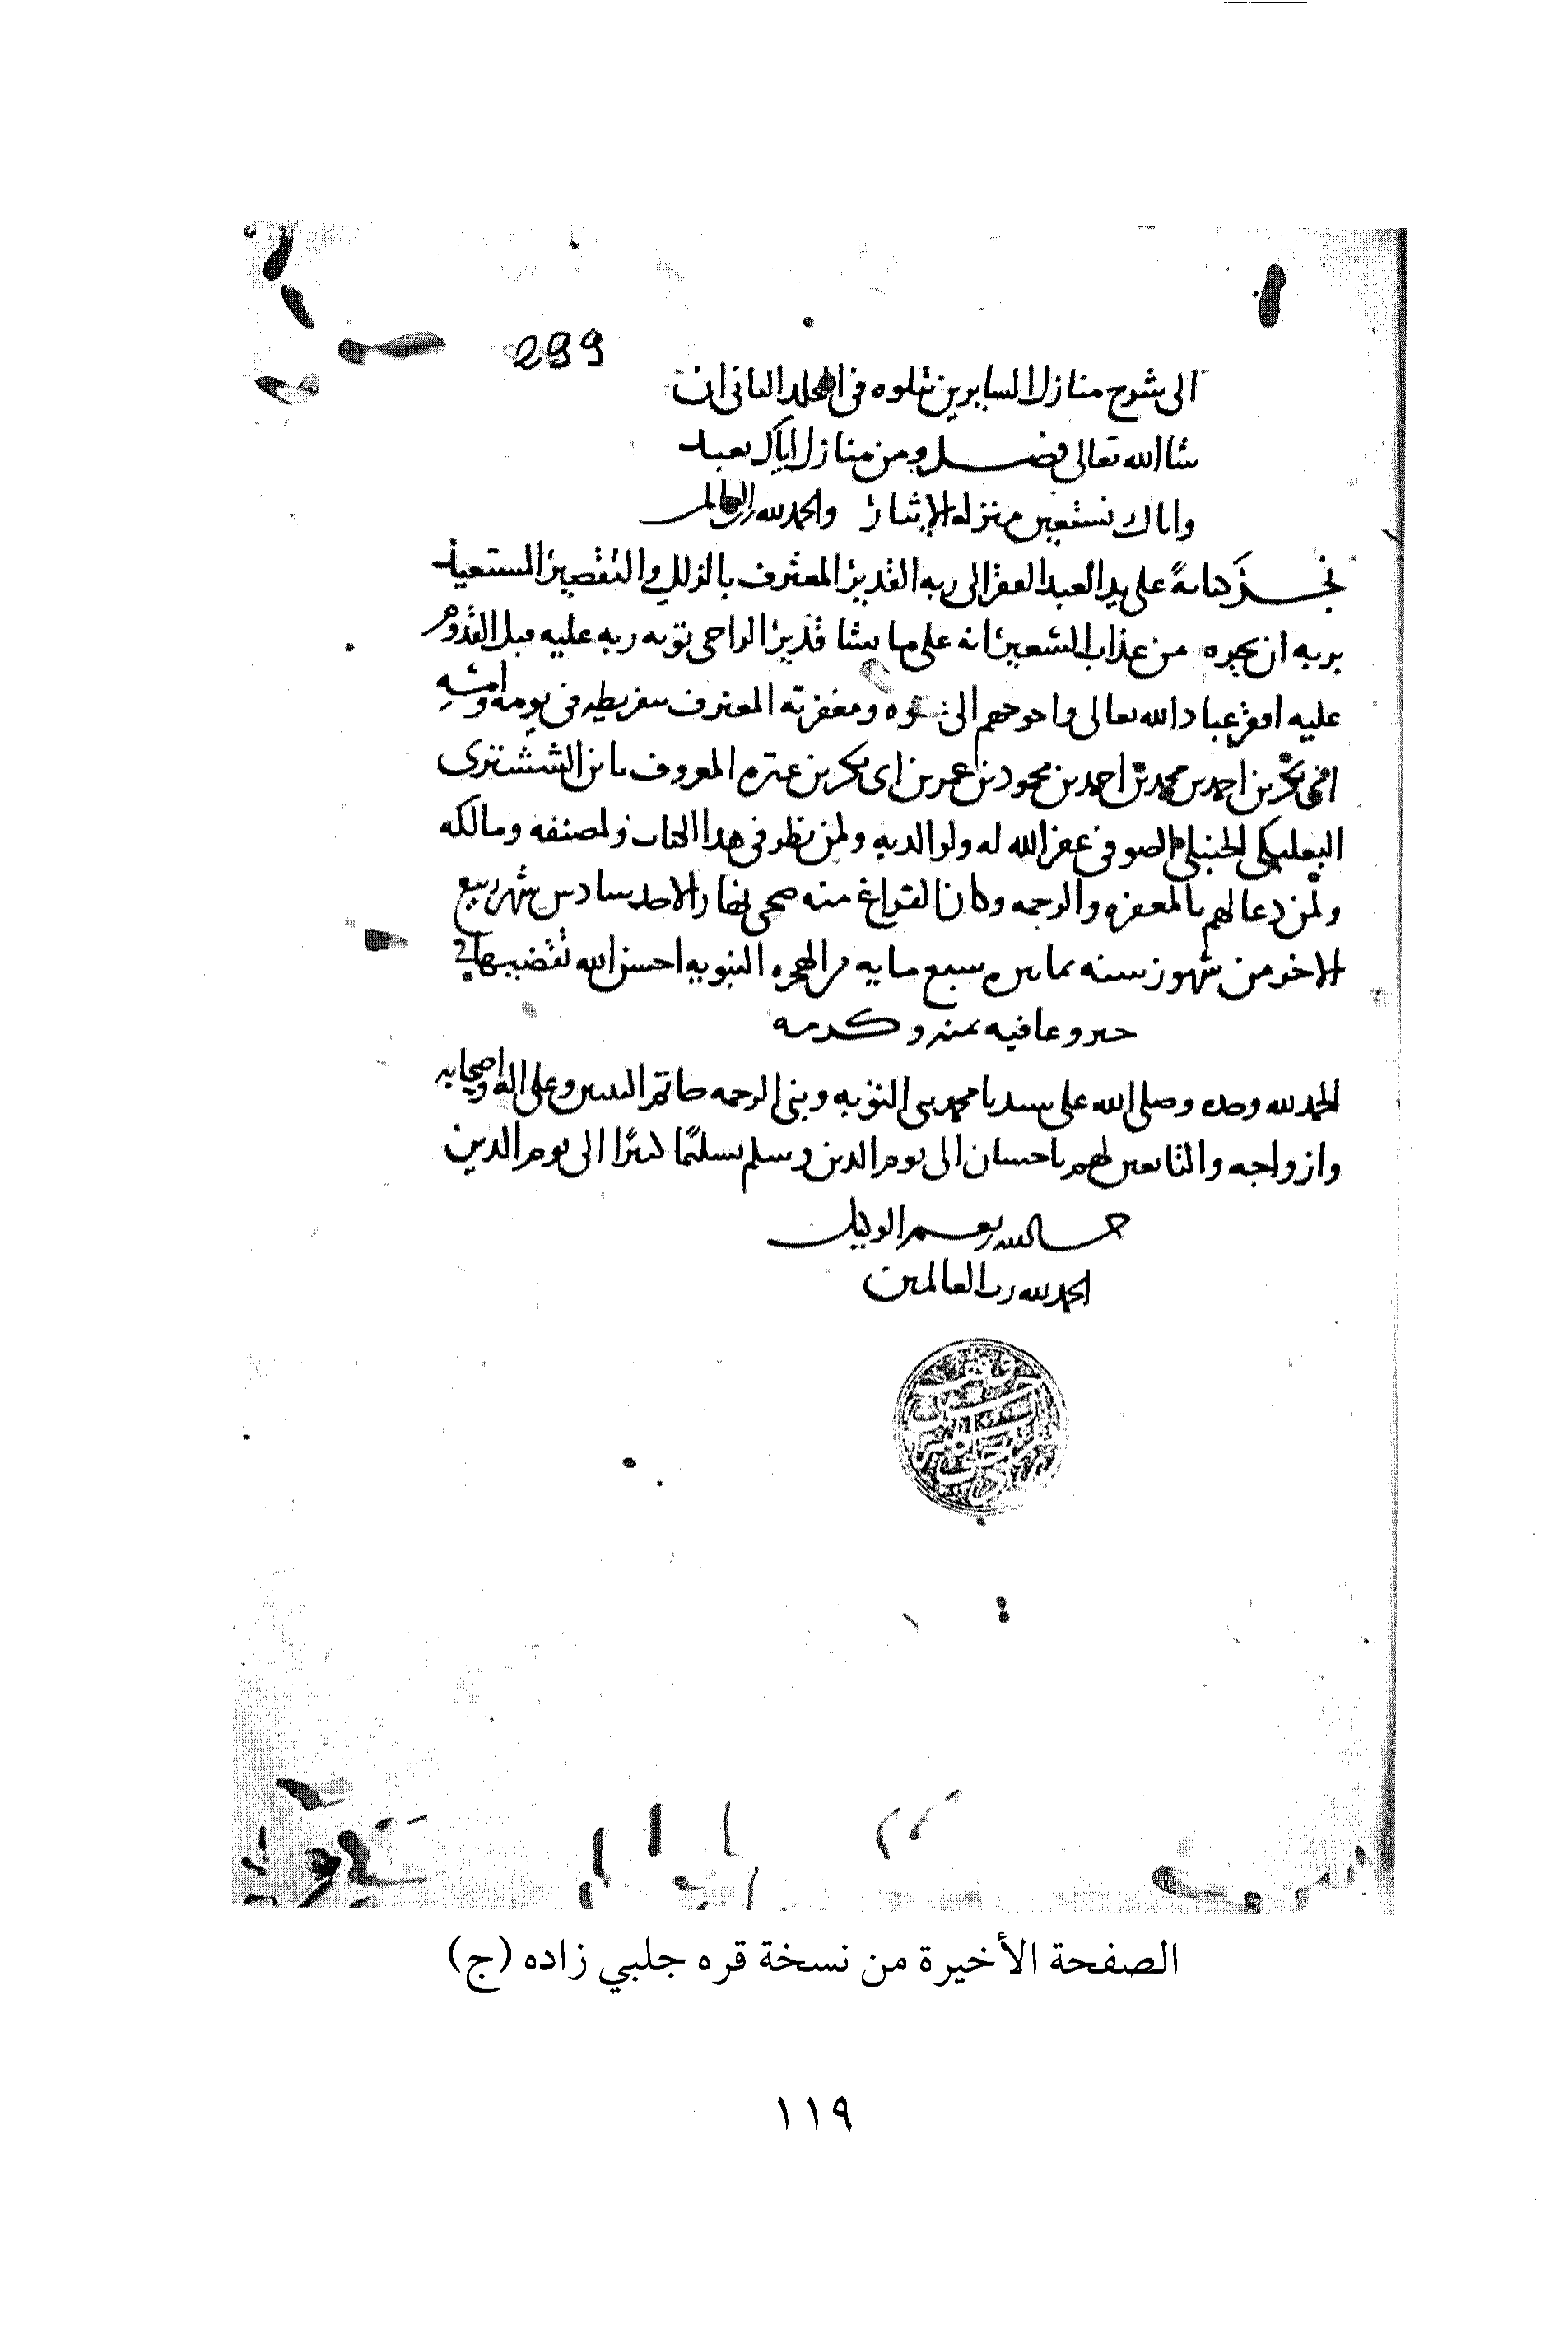 299
الى شرح منازل السايرين يتلوه فى المجلد الثانى ان
شا الله تعالى فصل ومن منازل اياك نعبد
واياك نستعين منزله الايثار والحمد لله رب العالمين
نجز كتابةً على يد العبد الفقير الى ربه القدير المعترف بالزلل والتقصير المستعيذ
بربه ان يجيره من عذاب السعير انه على ما يشا قدير الراجى توبه ربه عليه قبل القدوم
عليه افقر عباد الله تعالى واحوجهم الى عفوه ومغفرته المعترف بتفريطه فى يومه وامسه
بن احمد بن محمد بن احمد بن محمود بن عمر بن ابى بكر بن عنتره المعروف بابن الششترى
البعلبكى الحنبلى الصوفى غفر الله له ولوالديه ولمن نظر فى هذا الكتاب ولمصنفه ومالكه
ولمن دعا لهم بالمغفره والرحمه وكان الفراغ منه ضحى نهار الاحد سادس شهر ربيع
الاخر من شهور سنه ثمانين وسبع مايه من الهجره النبويه احسن الله تقضيها فى
خير وعافيه بمنه وكرمه
الحمد لله وحده وصلى الله على سيدنا محمد نبى التوبه ونبى الرحمه خاتم النبيين وعلى اله واصحابه
وازواجه والتابعين لهم باحسان الى يوم الدين وسلم تسليمًا كثيرًا الى يوم الدين
حسبنا الله ونعم الوكيل
الحمد لله رب العالمين
الصفحة الأخيرة من نسخة قره جلبي زاده (ج)
١١٩